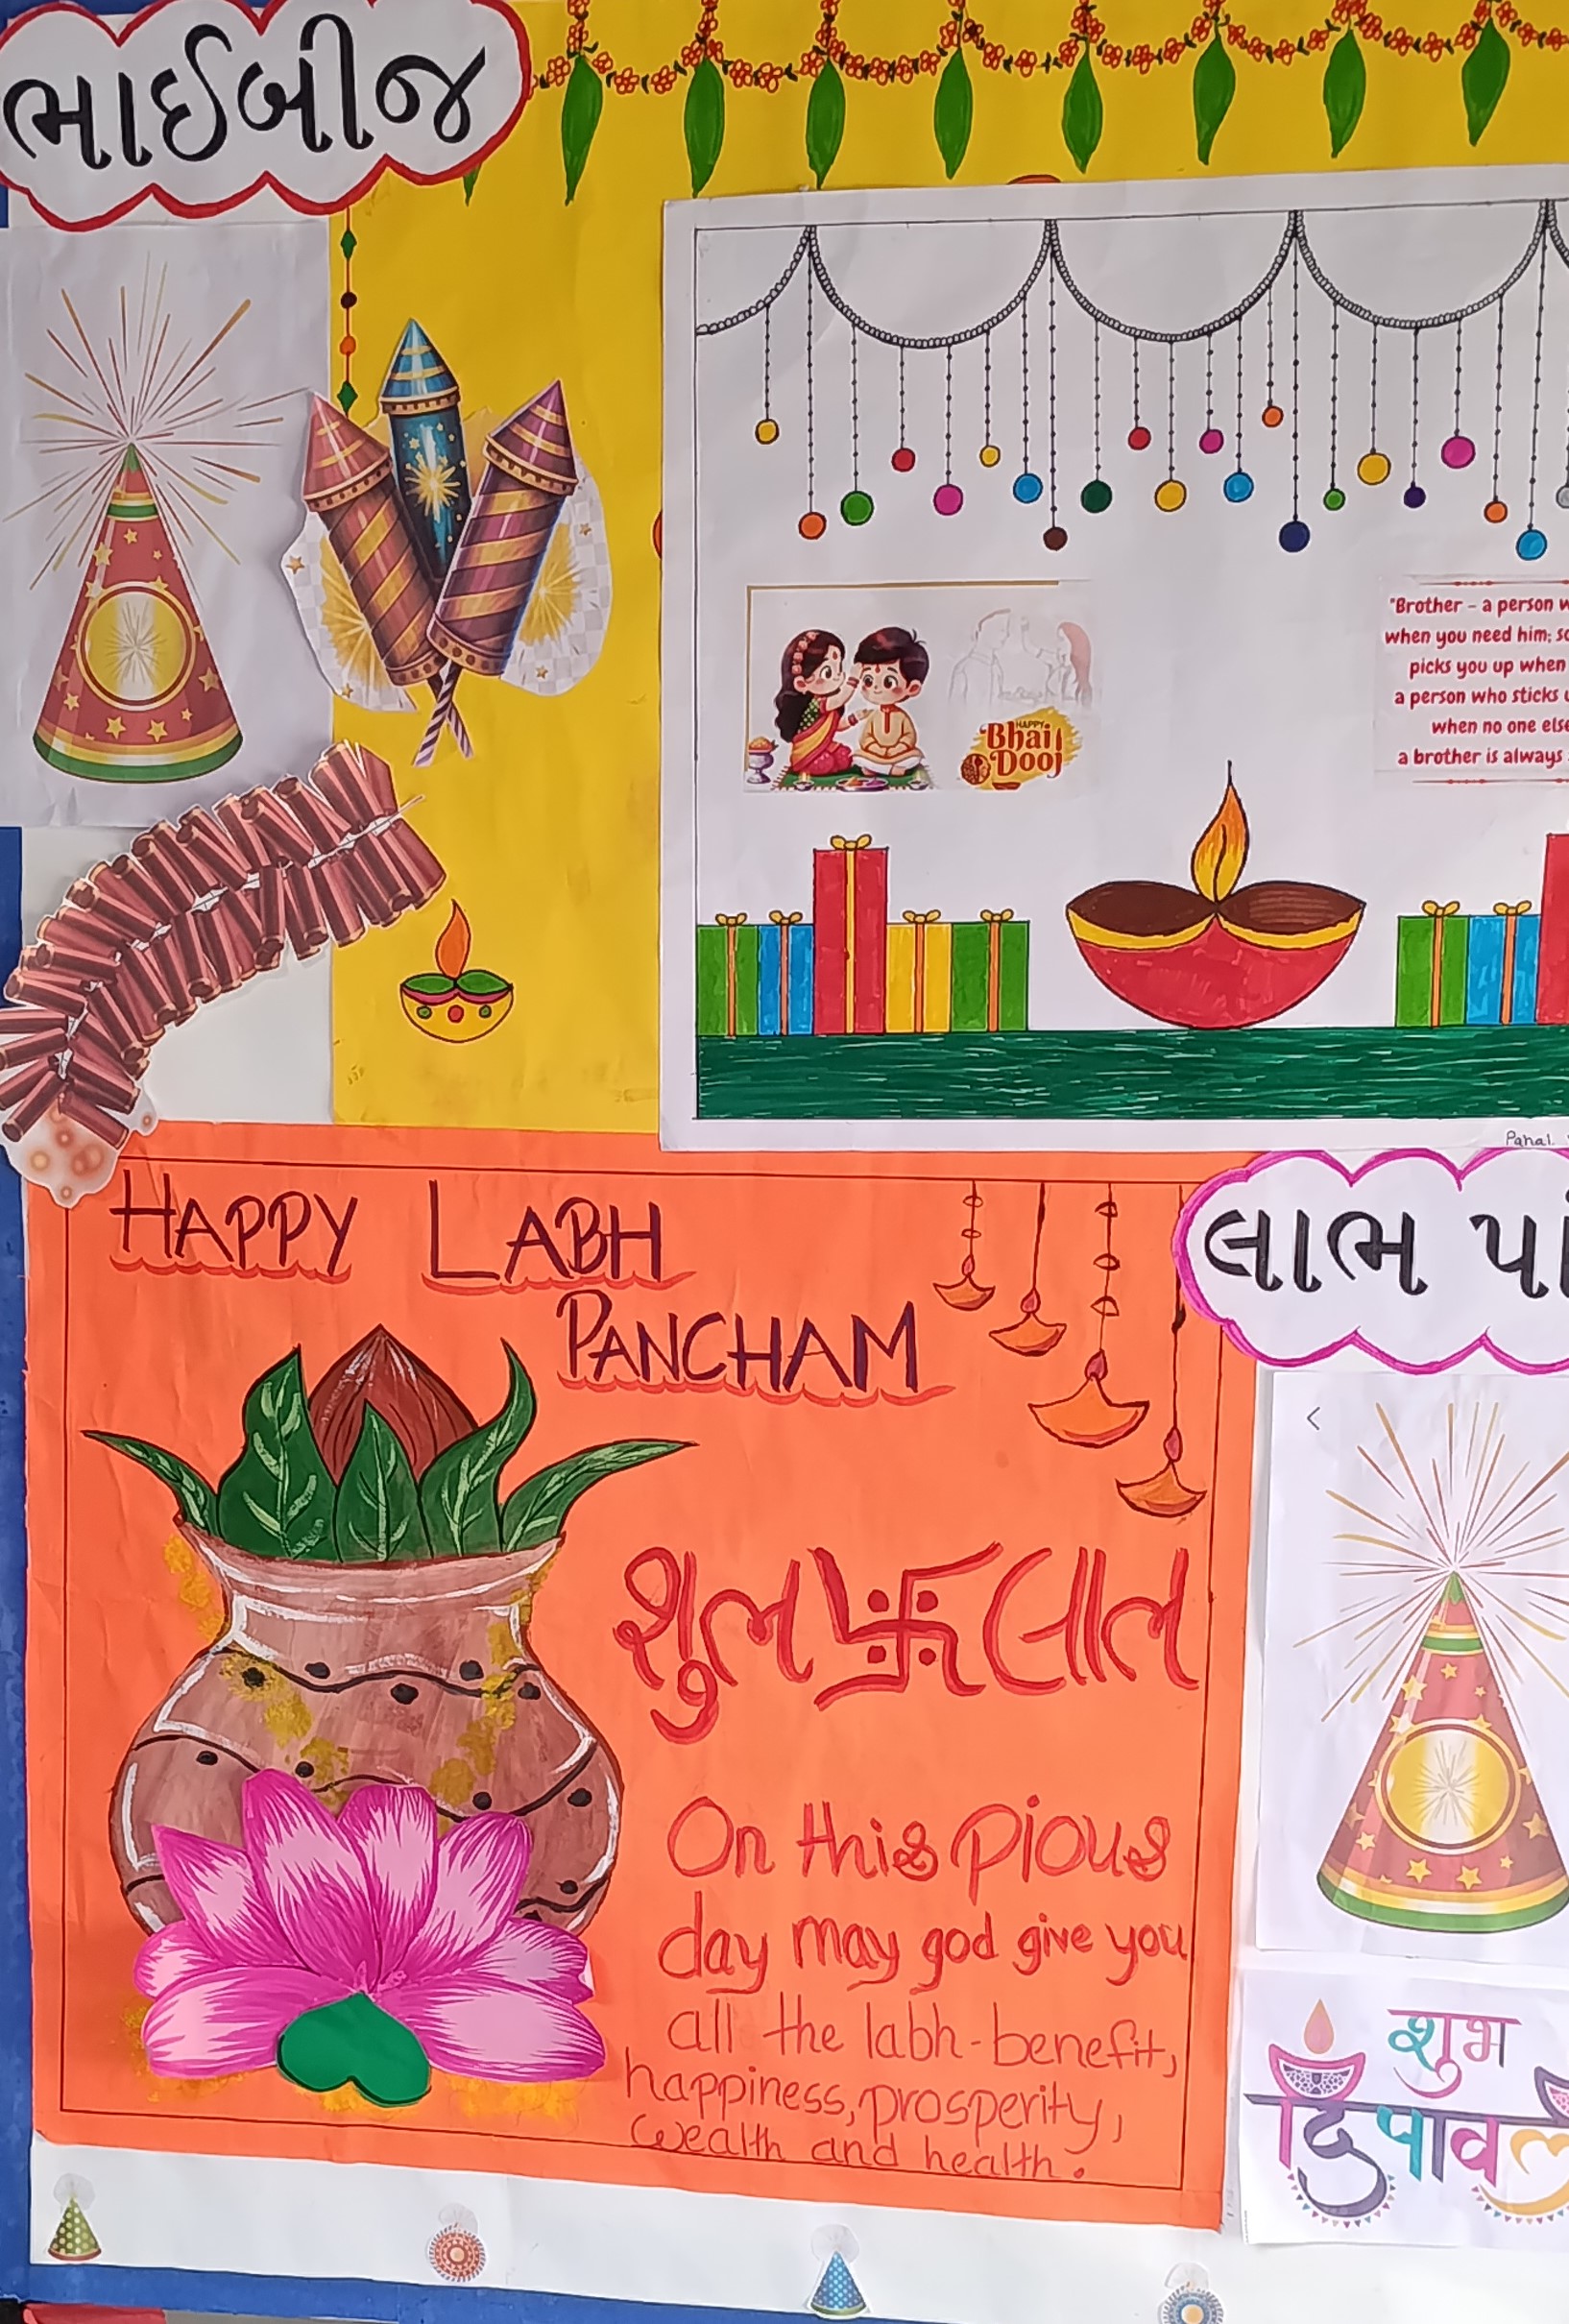 ભાઈબીજ
HAPPY
Bhai
Dooj
"Brother – a person
when you need him;
picks you up when
a person who sticks
when no one else
a brother is always
Pahal.
HAPPY LABH
PANCHAM
લાભ
શુભ 卐 લાભ
On this pious
day may god give you
all the labh-benefit,
happiness, prosperity,
wealth and health.
शुभ